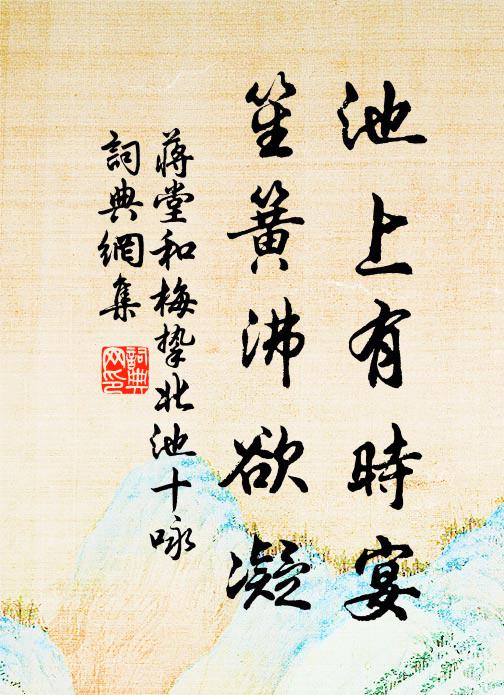 池上有時宴
笙簧沸欲凝
蔣堂和梅摯北池十咏
詞典網集
詞典網印